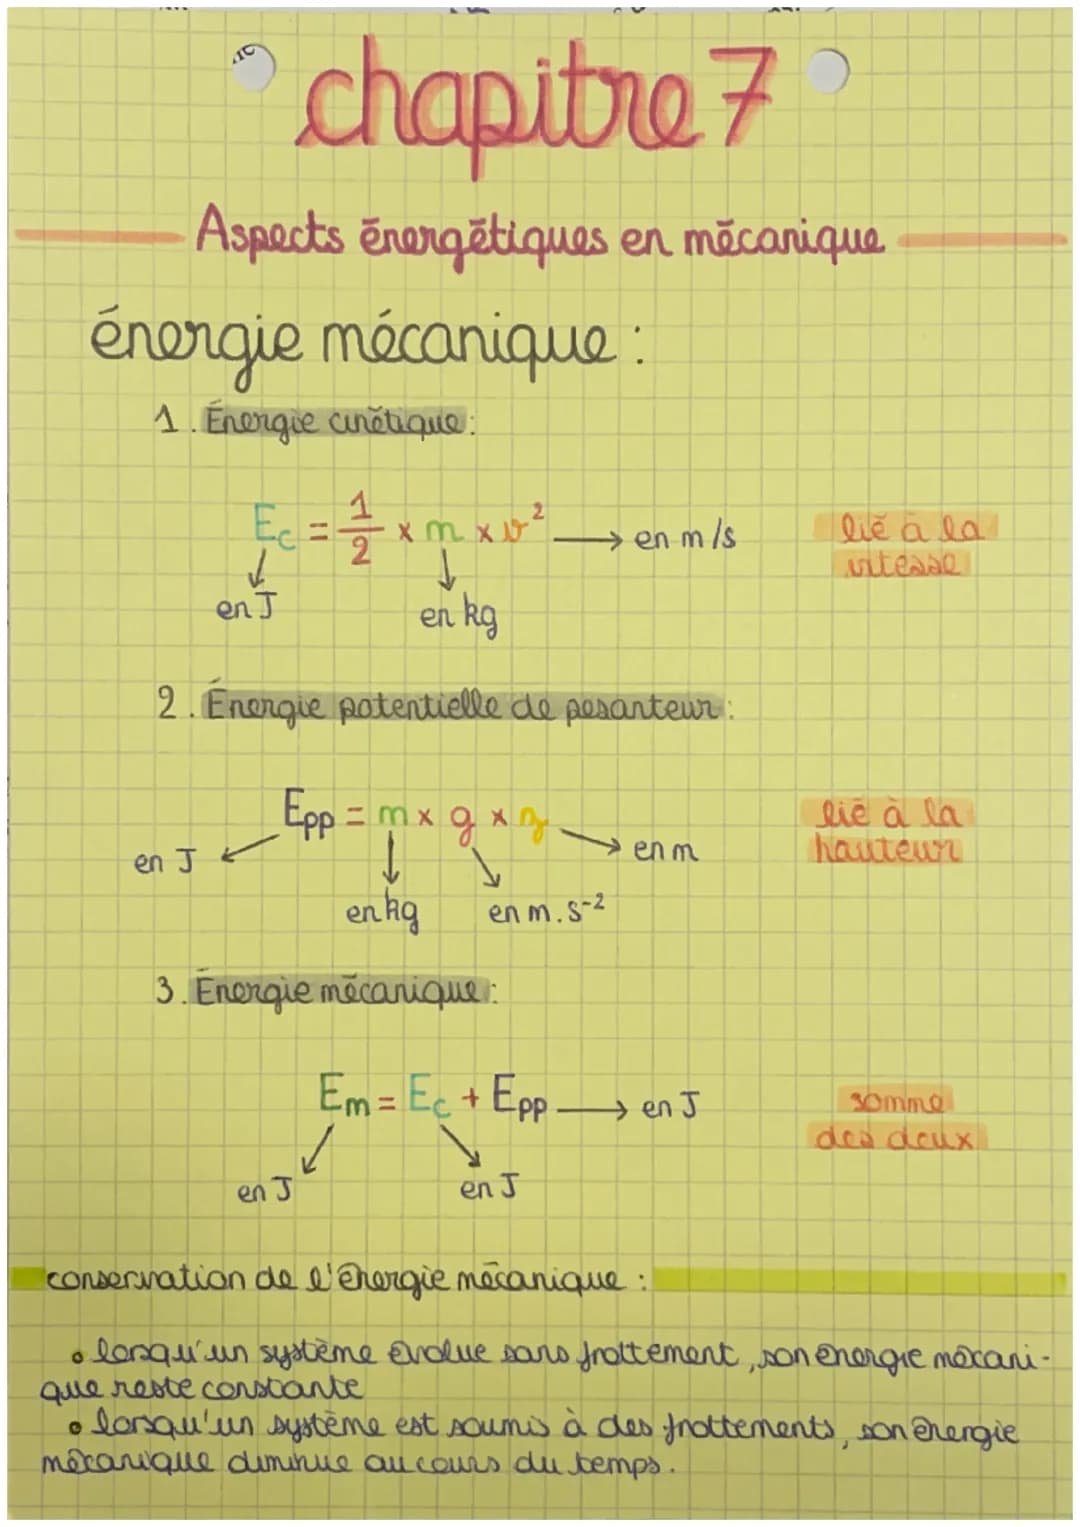 chapitre 7
Aspects énergétiques en mécanique
énergie mécanique :
1. Énergie cinétique :
Ec = 1/2 × m × v² → en m/s
lié à la
vitesse
en J
en kg
2. Énergie potentielle de pesanteur :
Epp = m × g × z
lié à la
hauteur
en J
en m
en kg
en m.s⁻²
3. Énergie mécanique :
Em = Ec + Epp → en J
somme
des deux
en J
en J
conservation de l'énergie mécanique :
• lorsqu'un système évolue sans frottement, son énergie mécani-
que reste constante
• lorsqu'un système est soumis à des frottements, son énergie
mécanique diminue au cours du temps.